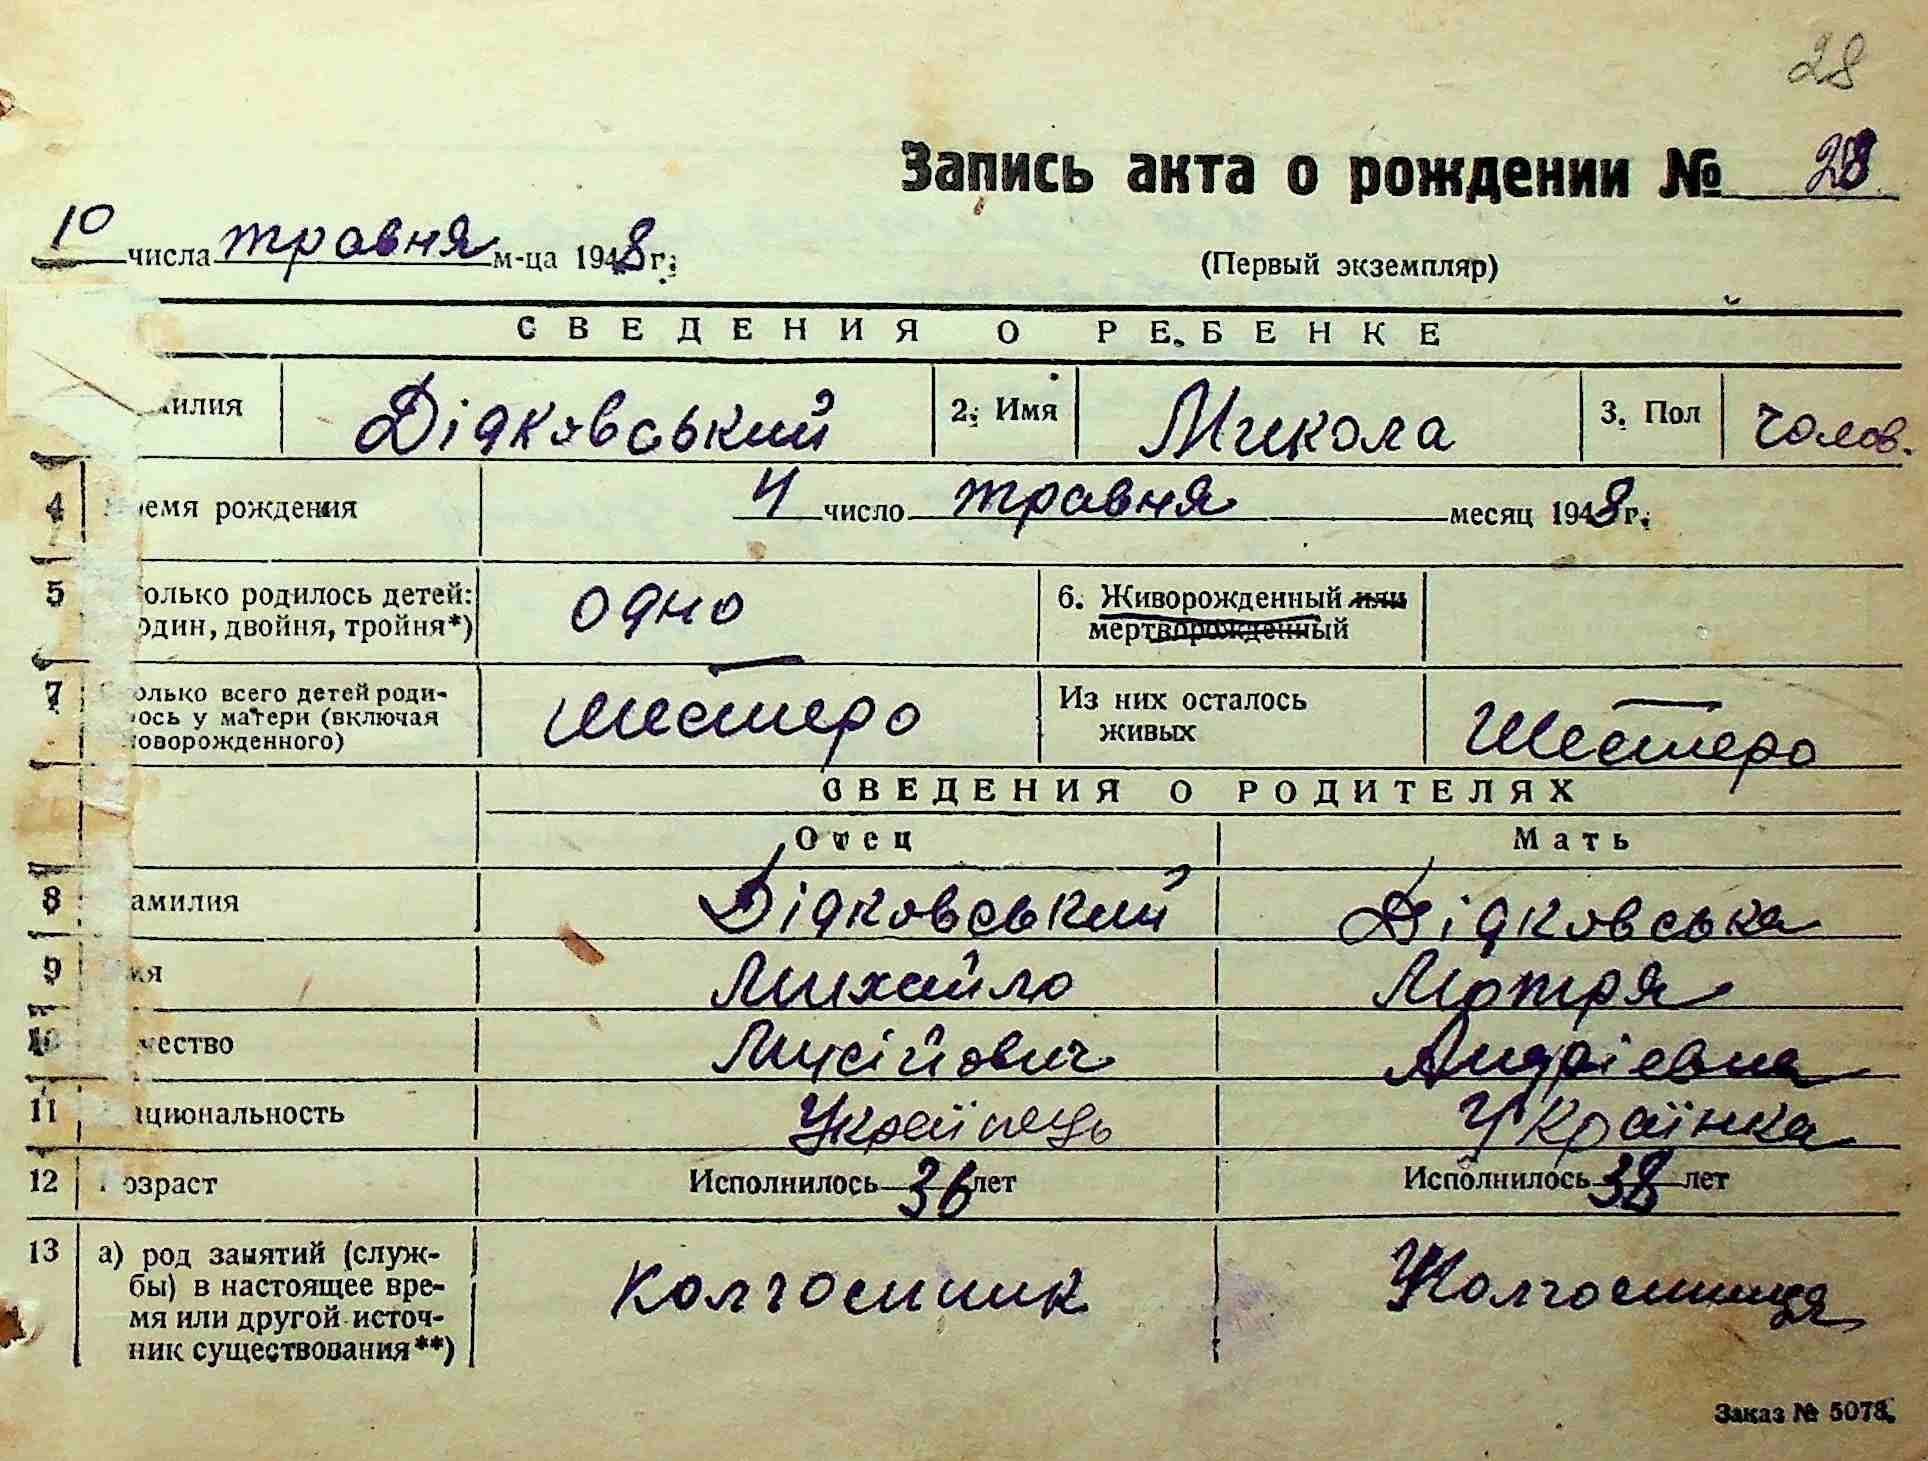 28
Запись акта о рождении № 28
10 числа травня м-ца 1948 г.
(Первый экземпляр)
СВЕДЕНИЯ О РЕБЕНКЕ
милия Дідковський 2. Имя Микола 3. Пол чолов.
4 ремя рождения 4 число травня месяц 1948 г.
5 олько родилось детей: один, двойня, тройня*) одно 6. Живорожденный или мертворожденный
7 олько всего детей роди-
ось у матери (включая
оворожденного) шестеро Из них осталось живых шестеро
СВЕДЕНИЯ О РОДИТЕЛЯХ
Отец Мать
8 амилия Дідковський Дідковська
9 мя Михайло Мотря
10 чество Мусійович Андріевна
11 ациональность Українець Українка
12 озраст Исполнилось 36 лет Исполнилось 38 лет
13 а) род занятий (служ-
бы) в настоящее вре-
мя или другой источ-
ник существования**) колгоспник Колгоспниця
Заказ № 5078.